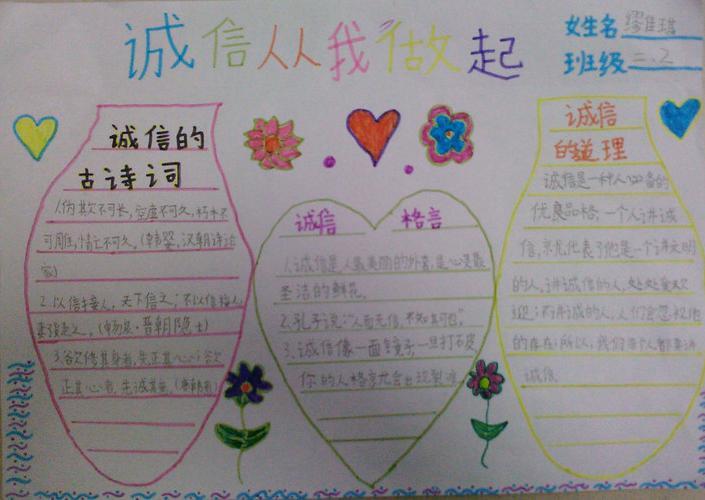 诚信从从我做起
女生名 缪佳琪
班级 三.2
诚信的
古诗词
1.伪欺不可长,空虚不可久,朽木不
可雕,情亡不可久。(韩婴,汉朝诗论
家)
2.以信接人,天下信之;不以信接人
妻子疑之。(畅泉·晋朝隐士)
3.欲修其身者,先正其心;欲
正其心者,先诚其意。
诚信 格言
1.诚信是人最美丽的外套,是心灵最
圣洁的鲜花。
2.孔子说:"人而无信,不知其可也"。
3.诚信像一面镜子,一旦打破
你的人格就会出现裂痕
诚信
的道理
诚信是一种人必备的
优良品格,一个人讲诚
信,就代表了他是一个讲文明
的人,讲诚信的人,处处受欢
迎;不讲诚的人,人们会忽视他
的存在;所以,我们每个人都要讲
诚信